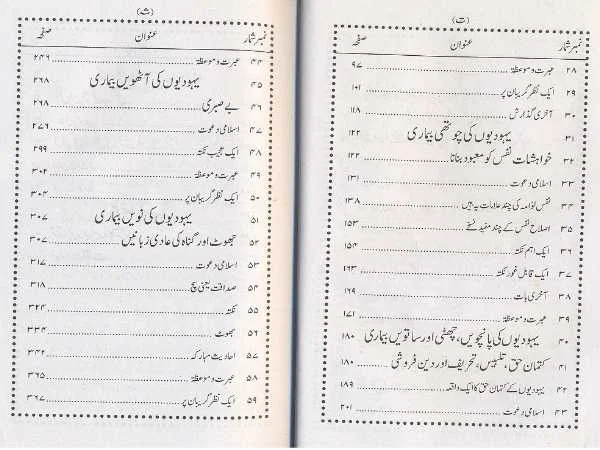 (ت)
نمبر شمار عنوان صفحہ
۲۸ عبرت و موعظۃ ۹۷
۲۹ ایک نظر گریبان پر ۱۰۱
۳۰ آخری گذارش ۱۱۸
۳۱ یہودیوں کی چوتھی بیماری ۱۲۲
۳۲ خواہشات نفس کو معبود بنانا ۱۲۲
۳۳ اسلامی دعوت ۱۳۱
۳۴ نفس لوامہ کی چند عادات یہ ہیں ۱۳۸
۳۵ اصلاح نفس کے چند مفید نسخے ۱۵۳
۳۶ ایک اہم نکتہ ۱۵۴
۳۷ ایک قابل غور نکتہ ۱۶۳
۳۸ آخری بات ۱۶۹
۳۹ عبرت و موعظۃ ۱۷۱
۴۰ یہودیوں کی پانچویں، چھٹی اور ساتویں بیماری ۱۸۰
۴۱ کتمان حق، تلبیس، تحریف اور دین فروشی ۱۸۰
۴۲ یہودیوں کے کتمان حق کا ایک واقعہ ۱۸۹
۴۳ اسلامی دعوت ۲۰۱
(ث)
نمبر شمار عنوان صفحہ
۴۴ عبرت و موعظۃ ۲۴۶
۴۵ یہودیوں کی آٹھویں بیماری ۲۶۸
۴۶ بے صبری ۲۶۸
۴۷ اسلامی دعوت ۲۷۶
۴۸ ایک عجیب نکتہ ۲۹۹
۴۹ عبرت و موعظۃ ۳۰۲
۵۰ ایک نظر گریبان پر ۳۰۴
۵۱ یہودیوں کی نویں بیماری ۳۰۷
۵۲ جھوٹ اور گناہ کی عادی زبانیں ۳۰۷
۵۳ اسلامی دعوت ۳۱۷
۵۴ صداقت یعنی سچ ۳۱۸
۵۵ نکتہ ۳۲۴
۵۶ جھوٹ ۳۳۴
۵۷ احادیث مبارکہ ۳۴۲
۵۸ عبرت و موعظۃ ۳۶۵
۵۹ ایک نظر گریبان پر ۳۶۷